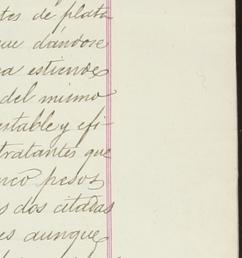 tes de plata
que dándose
ra estiende
del mismo
estable y efi
tratantes que
nco pesos
s dos citadas
es aunque